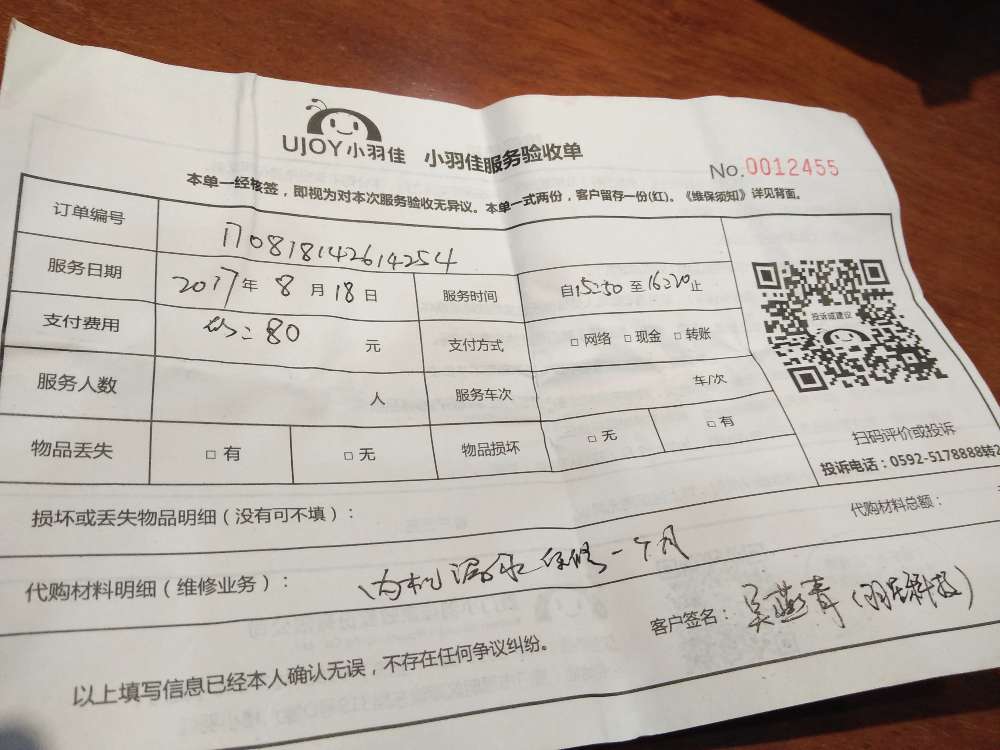 UJOY小羽佳 小羽佳服务验收单
No.0012455
本单一经核签，即视为对本次服务验收无异议。本单一式两份，客户留存一份(红)。《维保须知》详见背面。
订单编号 170818142614254
服务日期 2017年 8 月 18 日 服务时间 自15:50至16:20止
支付费用 80 元 支付方式 □ 网络 □ 现金 □ 转账
服务人数 人 服务车次 车/次
物品丢失 □ 有 □ 无 物品损坏 □ 无 □ 有
投诉或建议
扫码评价或投诉
投诉电话：0592-5178888转2
损坏或丢失物品明细（没有可不填）：
代购材料总额：
代购材料明细（维修业务）： 内机漏水保修一个月
客户签名： 吴燕青
以上填写信息已经本人确认无误，不存在任何争议纠纷。